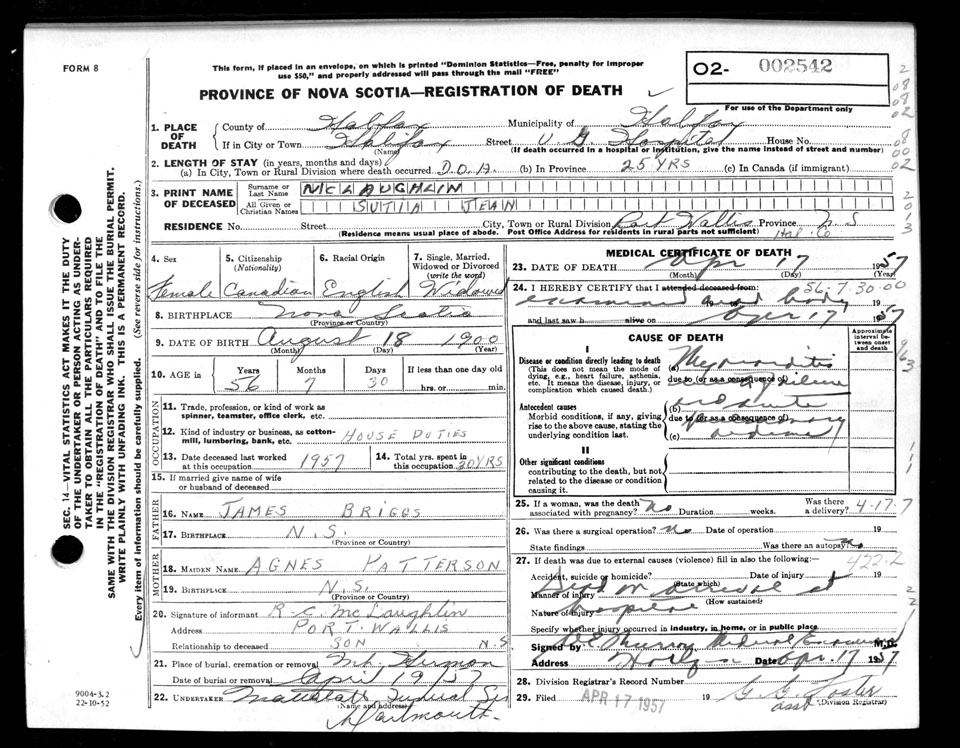 FORM 8
This form, if placed in an envelope, on which is printed "Dominion Statistics—Free, penalty for improper
use $50," and properly addressed will pass through the mail "FREE"
02- 002542
For use of the Department only
PROVINCE OF NOVA SCOTIA—REGISTRATION OF DEATH
1. PLACE OF DEATH
County of Halifax Municipality of Halifax
If in City or Town Halifax Street V. G. Hospital House No.
(Name) (If death occurred in a hospital or institution, give the name instead of street and number)
2. LENGTH OF STAY (in years, months and days)
(a) In City, Town or Rural Division where death occurred D.O.A. (b) In Province 25 YRS (c) In Canada (if immigrant)
3. PRINT NAME OF DECEASED
Surname or Last Name MCLAUGHLIN
All Given or Christian Names SUTIA JEAN
RESIDENCE No. Street City, Town or Rural Division Port Wallis Province N S
(Residence means usual place of abode. Post Office Address for residents in rural parts not sufficient) Hal. Co
4. Sex
5. Citizenship (Nationality)
6. Racial Origin
7. Single, Married, Widowed or Divorced (write the word)
Female Canadian English Widowed
8. BIRTHPLACE Nova Scotia
(Province or Country)
9. DATE OF BIRTH August 18 1900
(Month) (Day) (Year)
10. AGE in Years Months Days If less than one day old
56 7 30 hrs. or min.
OCCUPATION
11. Trade, profession, or kind of work as
spinner, teamster, office clerk, etc.
12. Kind of industry or business, as cotton-
mill, lumbering, bank, etc. HOUSE DUTIES
13. Date deceased last worked at this occupation 1957
14. Total yrs. spent in this occupation 30 YRS
15. If married give name of wife
or husband of deceased
FATHER
16. NAME JAMES BRIGGS
17. BIRTHPLACE N.S.
(Province or Country)
MOTHER
18. MAIDEN NAME AGNES PATTERSON
19. BIRTHPLACE N.S.
(Province or Country)
20. Signature of informant R. C. McLaughlin
Address PORT WALLIS
Relationship to deceased SON N.S
21. Place of burial, cremation or removal Mt. Hermon
Date of burial or removal April 19/57
22. UNDERTAKER Mattatall Funeral
(Name and address)
Dartmouth
MEDICAL CERTIFICATE OF DEATH
23. DATE OF DEATH Apr 17 1957
(Month) (Day) (Year)
24. I HEREBY CERTIFY that I attended deceased from: 56-7-30-00
examined dead body 19
and last saw h alive on Apr 17 1957
CAUSE OF DEATH
Approximate interval between onset and death
I
Disease or condition directly leading to death
(This does not mean the mode of
dying, e.g., heart failure, asthenia,
etc. It means the disease, injury, or
complication which caused death.)
(a) Myocarditis
due to (or as a consequence of) failure
Antecedent causes
Morbid conditions, if any, giving
rise to the above cause, stating the
underlying condition last.
(b) acute
due to (or as a consequence of)
(c)
II
Other significant conditions
contributing to the death, but not
related to the disease or condition
causing it.
25. If a woman, was the death associated with pregnancy? No Duration weeks. Was there a delivery? 4-17-7
26. Was there a surgical operation? No Date of operation 19
State findings Was there an autopsy? No
27. If death was due to external causes (violence) fill in also the following: 422.2
Accident, suicide or homicide? Date of injury 19
(State which)
Manner of injury Dead on arrival at
(How sustained)
Nature of injury hospital
Specify whether injury occurred in industry, in home, or in public place
Signed by Murray Medical Examiner M.D.
Address Halifax Date Apr 17 1957
28. Division Registrar's Record Number
29. Filed APR 17 1957 19 G. G. Foster
asst (Division Registrar)
SEC. 14—VITAL STATISTICS ACT MAKES IT THE DUTY
OF THE UNDERTAKER OR PERSON ACTING AS UNDER-
TAKER TO OBTAIN ALL THE PARTICULARS REQUIRED
IN THE "REGISTRATION OF DEATH" AND TO FILE THE
SAME WITH THE DIVISION REGISTRAR WHO SHALL ISSUE THE BURIAL PERMIT.
WRITE PLAINLY WITH UNFADING INK. THIS IS A PERMANENT RECORD.
Every item of information should be carefully supplied. (See reverse side for instructions.)
9004-3.2
22-10-52